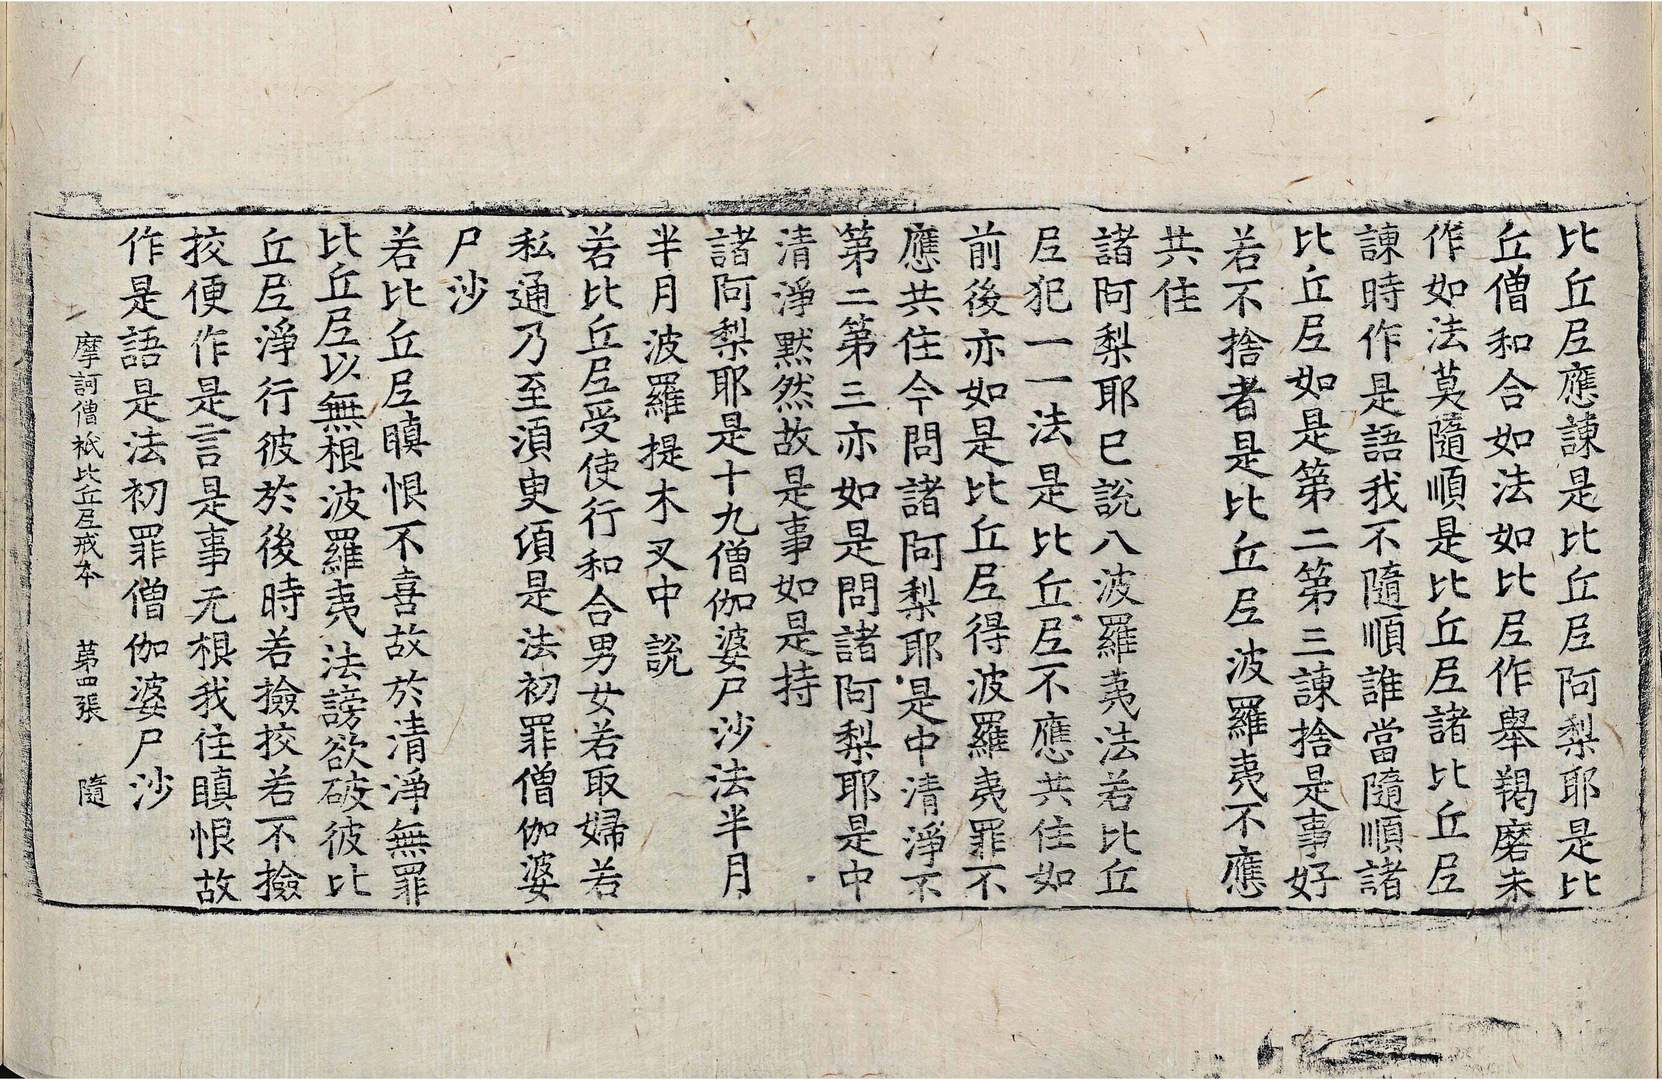 比丘尼應諫是比丘尼阿梨耶是比
丘僧和合如法如比尼作舉羯磨未
作如法莫隨順是比丘尼諸比丘尼
諫時作是語我不隨順誰當隨順諸
比丘尼如是第二第三諫捨是事好
若不捨者是比丘尼波羅夷不應
共住
諸阿梨耶已說八波羅夷法若比丘
尼犯一一法是比丘尼不應共住如
前後亦如是比丘尼得波羅夷罪不
應共住今問諸阿梨耶是中清淨不
第二第三亦如是問諸阿梨耶是中
清淨默然故是事如是持
諸阿梨耶是十九僧伽婆尸沙法半月
半月波羅提木叉中說
若比丘尼受使行和合男女若取婦若
私通乃至須臾頃是法初罪僧伽婆
尸沙
若比丘尼瞋恨不喜故於清淨無罪
比丘尼以無根波羅夷法謗欲破彼比
丘尼淨行彼於後時若撿挍若不撿
挍便作是言是事无根我住瞋恨故
作是語是法初罪僧伽婆尸沙
摩訶僧祇比丘尼戒本 第四張 隨